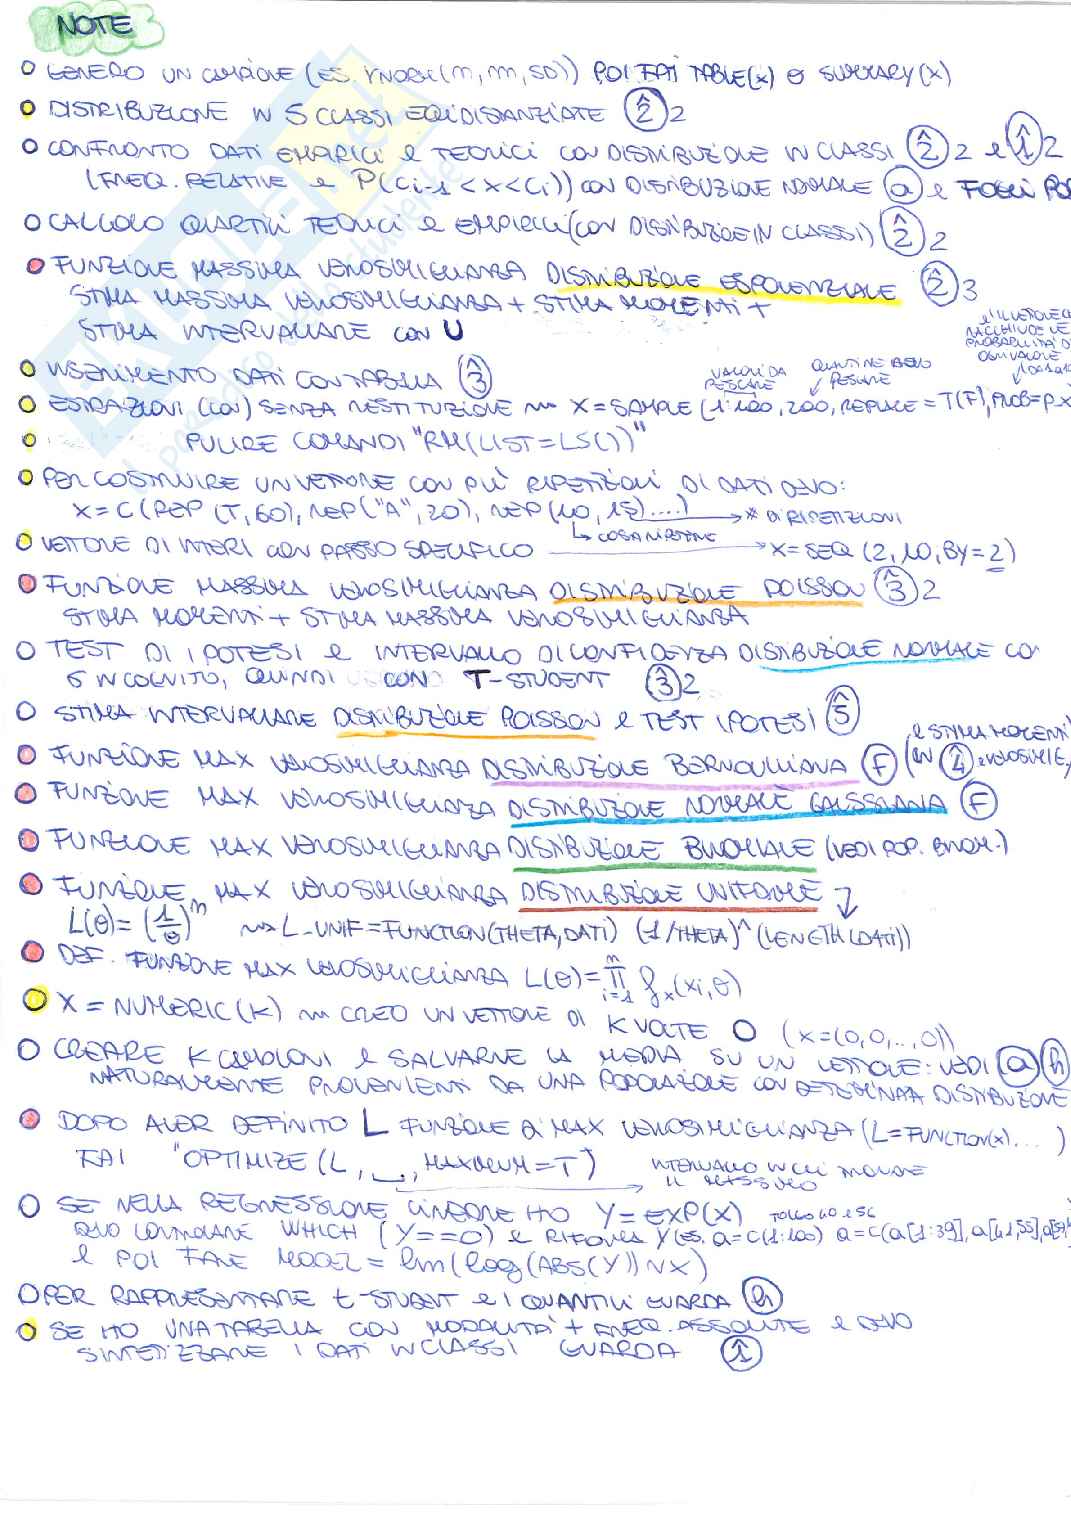 NOTE
GENERO UN CAMPIONE (ES. RNORM(n, m, SD)) POI FAI TABLE(x) O SUMMARY(x)
DISTRIBUZIONE IN 5 CLASSI EQUIDISTANZIATE 2̂ 2
CONFRONTO DATI EMPIRICI e TEORICI CON DISTRIBUZIONE IN CLASSI 2̂ 2 e 1̂ 2
(FREQ. RELATIVE e P(Ci-1 < X < Ci)) CON DISTRIBUZIONE NORMALE a e FOGLI
CALCOLO QUARTILI TEORICI E EMPIRICI (CON DISTRIBUZIONE IN CLASSI) 2̂ 2
FUNZIONE MASSIMA VEROSIMIGLIANZA DISTRIBUZIONE ESPONENZIALE 2̂ 3
STIMA MASSIMA VEROSIMIGLIANZA + STIMA MOMENTI +
STIMA INTERVALLARE CON U
INSERIMENTO DATI CON TABELLA 3̂
VALORI DA PESCARE
QUANTI NE DEVO PESCARE
PROBABILITÀ
OGNI VALORE
ESTRAZIONI (CON) SENZA RESTITUZIONE X = SAMPLE (1:100, 200, REPLACE = T(F), PROB=P.X
PULIRE COMANDI "RM(LIST=LS())"
PER COSTRUIRE UN VETTORE CON PIÙ RIPETIZIONI DI DATI DEVO:
X = C (REP (T, 60), REP("A", 20), REP (10, 15) ....) → # DI RIPETIZIONI
↳ COSA RIPETERE
VETTORE DI INTERI CON PASSO SPECIFICO → X = SEQ (2, 10, BY = 2)
FUNZIONE MASSIMA VEROSIMIGLIANZA DISTRIBUZIONE POISSON 3̂ 2
STIMA MOMENTI + STIMA MASSIMA VEROSIMIGLIANZA
TEST DI IPOTESI E INTERVALLO DI CONFIDENZA DISTRIBUZIONE NORMALE CO
σ INCOGNITO, QUINDI CON T-STUDENT 3̂ 2
STIMA INTERVALLARE DISTRIBUZIONE POISSON e TEST IPOTESI 5̂
FUNZIONE MAX VEROSIMIGLIANZA DISTRIBUZIONE BERNOULLIANA F (IN 4̂ e STIMA MOMENTI e VEROSIMIG
FUNZIONE MAX VEROSIMIGLIANZA DISTRIBUZIONE NORMALE GAUSSIANA F
FUNZIONE MAX VEROSIMIGLIANZA DISTRIBUZIONE BINOMIALE (VEDI POP. BINOM.)
FUNZIONE MAX VEROSIMIGLIANZA DISTRIBUZIONE UNIFORME ↓
L(θ) = (1/θ)^n L_UNIF = FUNCTION(THETA, DATI) (1/THETA)^(LENGTH(DATI))
DEF. FUNZIONE MAX VEROSIMIGLIANZA L(θ) = n Π i=1 fx(xi, θ)
X = NUMERIC(K) CREO UN VETTORE DI K VOLTE 0 (X = (0,0,..,0))
CREARE K CAMPIONI E SALVARNE LA MEDIA SU UN VETTORE: VEDI a h
NATURALMENTE PROVENIENTI DA UNA POPOLAZIONE CON DETERMINATA DISTRIBUZIONE
DOPO AVER DEFINITO L FUNZIONE DI MAX VEROSIMIGLIANZA (L = FUNCTION(x)... )
FAI "OPTIMIZE (L, _, MAXIMUM = T) INTERVALLO IN CUI TROVARE
IL MASSIMO
SE NELLA REGRESSIONE LINEARE HO Y = EXP(X) TOLGO 40 E 56
DEVO WHICH (Y==0) e Y (ES. a = C(1:100) a = C(a[1:39], a[41,55], a[57,
e POI FARE MOD2 = lm(log(ABS(Y)) ~ X)
PER RAPPRESENTARE t-STUDENT e I QUANTILI GUARDA h
SE HO UNA TABELLA CON MODALITÀ + FREQ. ASSOLUTE e DEVO
SINTETIZZARE I DATI IN CLASSI GUARDA 1̂